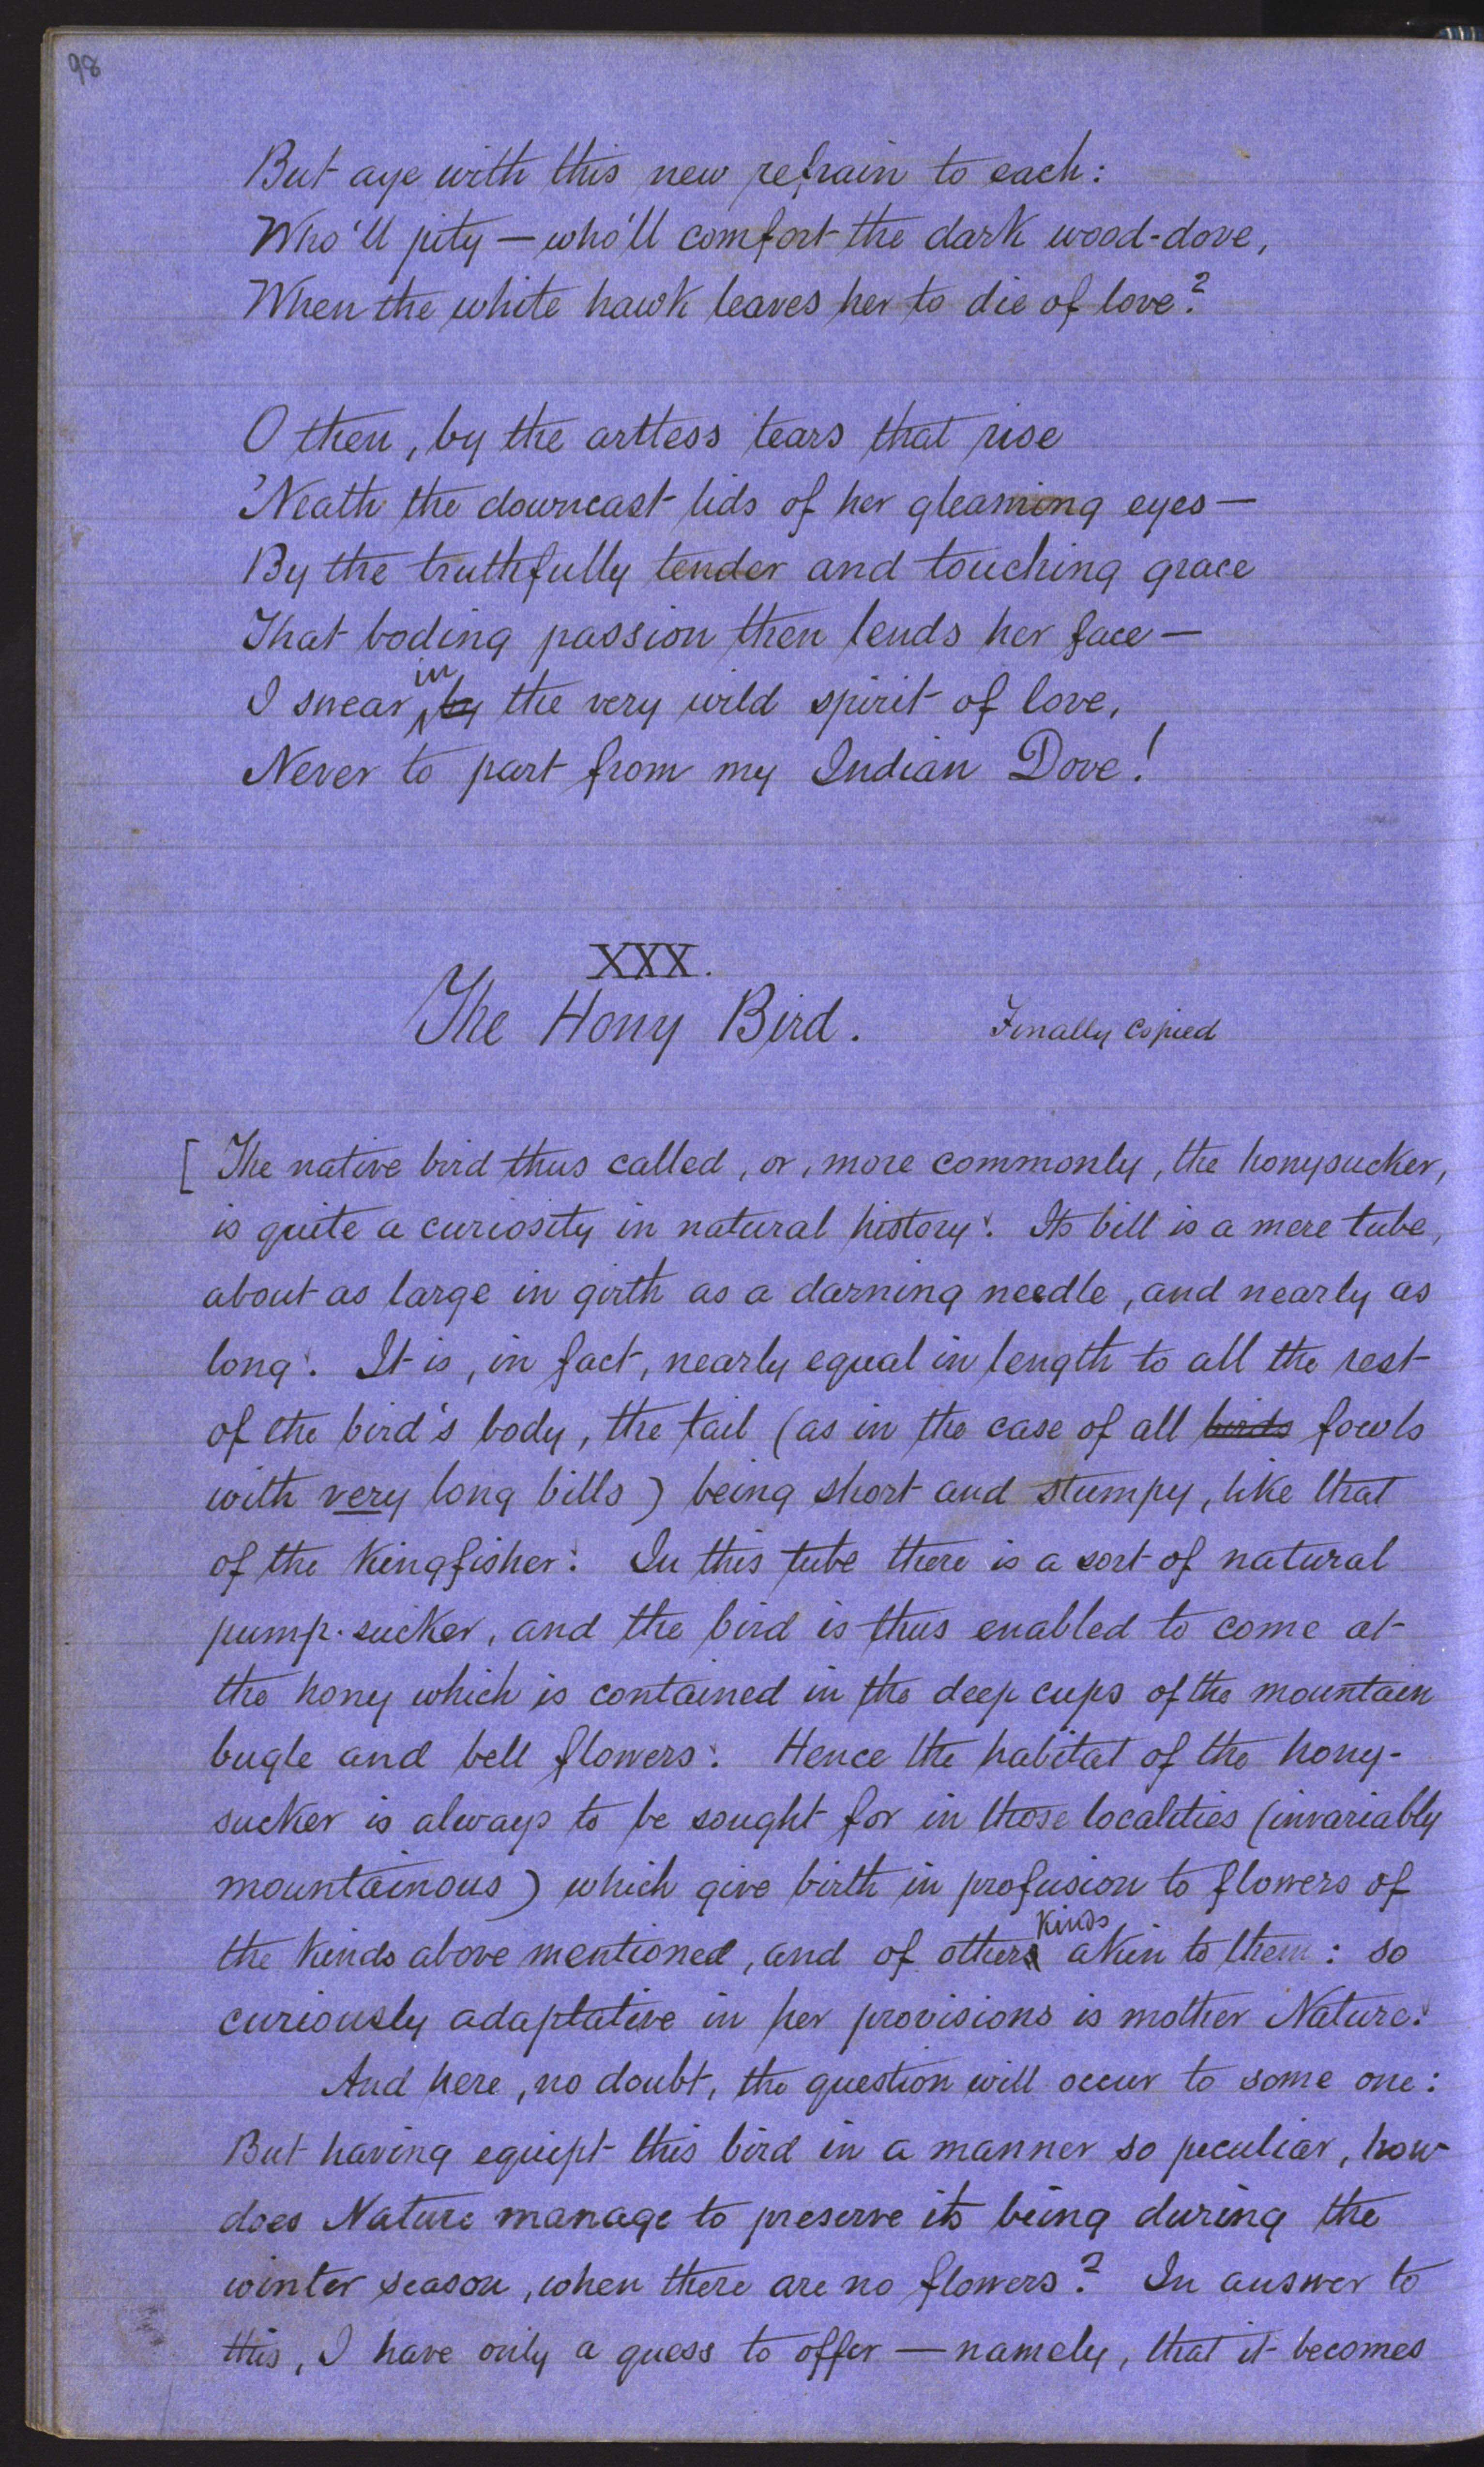 98
But aye with this new refrain to each:
Who'll pity — who'll comfort the dark wood-dove,
When the white hawk leaves her to die of love?
O then, by the artless tears that rise
'Neath the downcast lids of her gleaming eyes —
By the truthfully tender and touching grace
That boding passion then lends her face —
in
I swear by the very wild spirit of love,
Never to part from my Indian Dove!
XXX.
The Hony Bird. Finally copied
[The native bird thus called, or, more commonly, the honysucker,
is quite a curiosity in natural history. Its bill is a mere tube,
about as large in girth as a darning needle, and nearly as
long. It is, in fact, nearly equal in length to all the rest
of the bird's body, the tail (as in the case of all birds fowls
with very long bills) being short and stumpy, like that
of the Kingfisher. In this tube there is a sort of natural
pump-sucker, and the bird is thus enabled to come at
the hony which is contained in the deep cups of the mountain
bugle and bell flowers. Hence the habitat of the hony-
sucker is always to be sought for in those localities (invariably
mountainous) which give birth in profusion to flowers of
kinds
the kinds above mentioned, and of others akin to them: so
curiously adaptative in her provisions is mother Nature.
And here, no doubt, the question will occur to some one:
But having equipt this bird in a manner so peculiar, how
does Nature manage to preserve its being during the
winter season, when there are no flowers? In answer to
this, I have only a guess to offer — namely, that it becomes